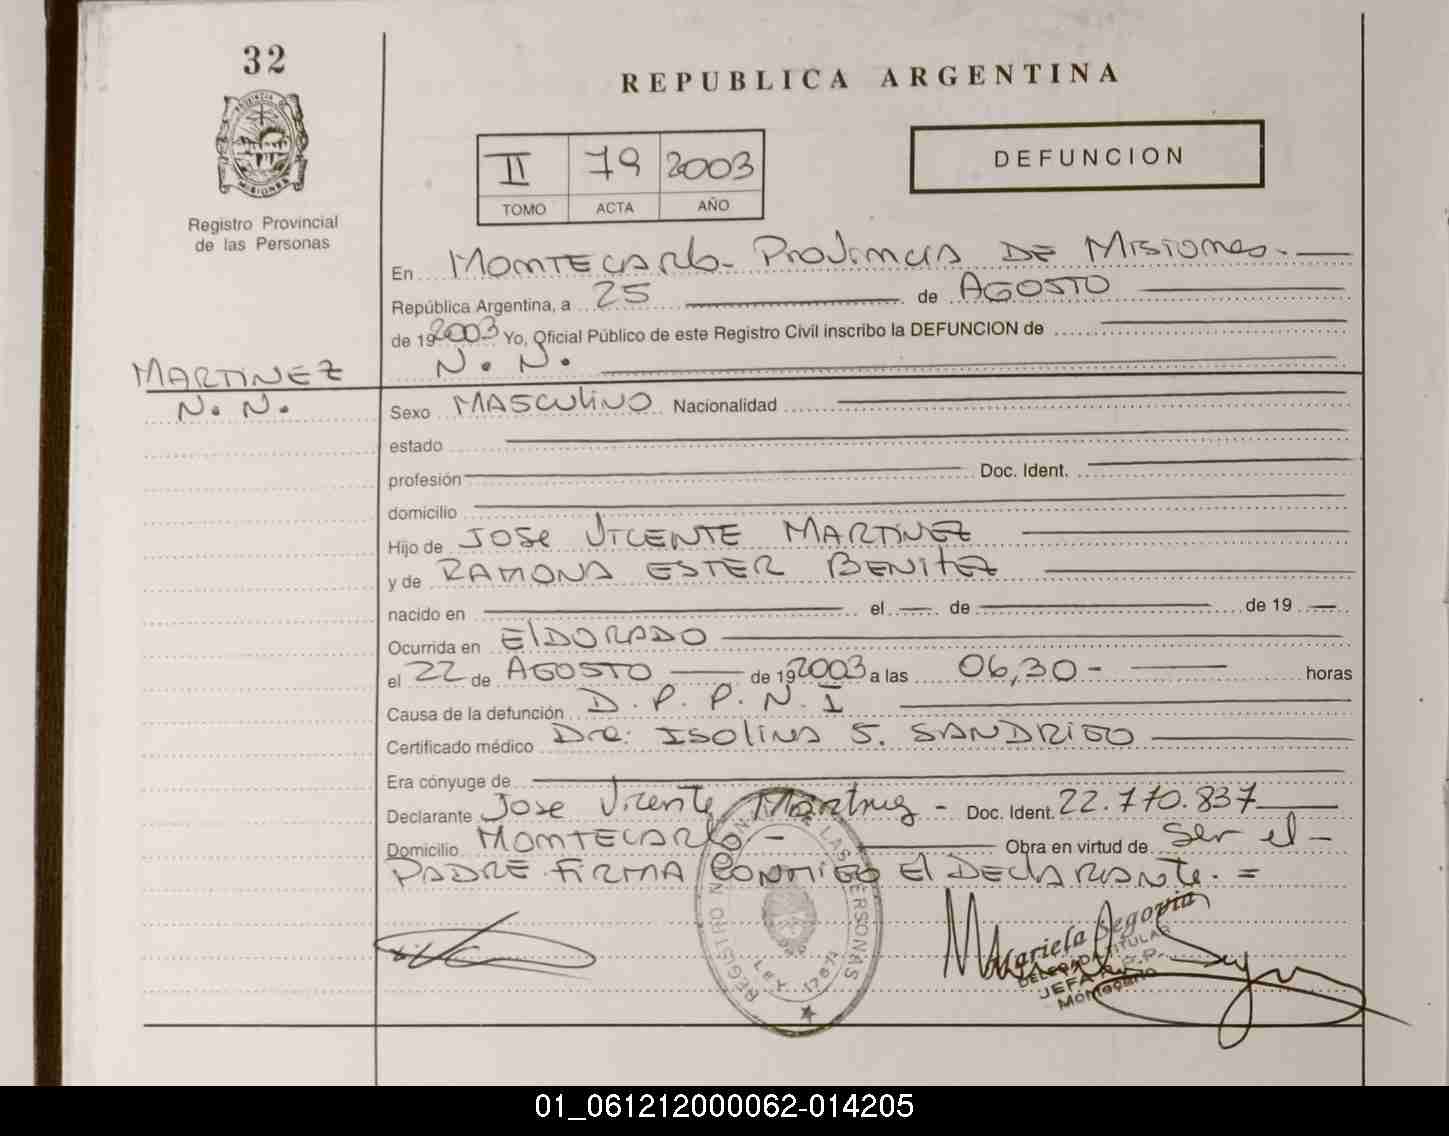 32
PROVINCIA DE
MISIONES
Registro Provincial
de las Personas
REPUBLICA ARGENTINA
II 79 2003
TOMO ACTA AÑO
DEFUNCION
En MONTECARLO - PROVINCIA DE MISIONES.
República Argentina, a 25 de AGOSTO
de 19 2003 Yo, Oficial Público de este Registro Civil inscribo la DEFUNCION de
N. N.
MARTINEZ
N. N.
Sexo MASCULINO Nacionalidad
estado
profesión Doc. Ident.
domicilio
Hijo de JOSE VICENTE MARTINEZ
y de RAMONA ESTER BENITEZ
nacido en el de de 19
Ocurrida en ELDORADO
el 22 de AGOSTO de 19 2003 a las 06,30 - horas
Causa de la defunción D. P. P. N. I
Certificado médico Dra: ISOLINA S. SANDRIGO
Era cónyuge de
Declarante Jose Vicente Martinez - Doc. Ident. 22.770.837
Domicilio MONTECARLO - Obra en virtud de Ser el -
PADRE FIRMA CONMIGO El DECLARANTE. =
REGISTRO DE LAS PERSONAS
LEY 17671
Mariela Segovia
DELEGADA TITULAR
JEFA R.P.P.
Montecarlo
01_061212000062-014205